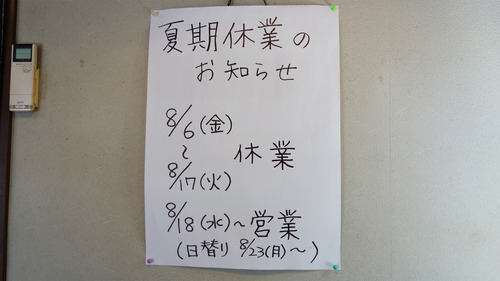 夏期休業の
お知らせ
8/6(金)
〜 休業
8/17(火)
8/18(水)〜営業
(日替り 8/23(月)〜)